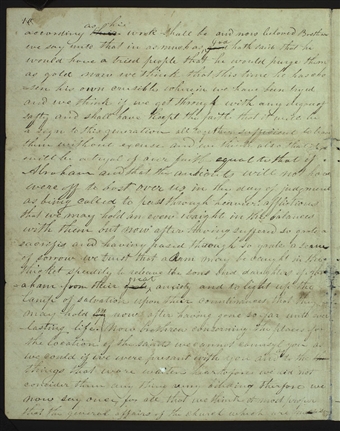 18
as his
according work shall be and now beloved Brethren
we say unto that in as much as God hath said that he
would have a tried people that he would purge them
as gold now we think that this time he has chosen
his own crusible wherein we have been tryed
and we think if we get through with any degree of
safty and shall have kept the faith that it will be
a sign to this generation all together sufficient to leave
them without excuse and we think also that it
will be a tryal of our faith equal to that of
Abraham and that the ancients will not have
were off to bost over us in the day of judgment
as being called to pass through heavier afflictions
that we may hold an even waight in the balances
with them but now after having suffered so grate a
sacrifis and having pased through so grate a season
of sorrow we trust that a Ram may be caught in the
thicket speedily to relieve the sons and daughters of Abra
aham from their great anxiety and to light up the
Lamp of salvation upon their countinances that they
may hold on now after having gone so far unto ever
lasting life. Now brethren conserning the places for
the location of the saints we cannot counsyl you as
we could if we were present with you and as to the
things that ware writen heartofore we did not
consider them any thing very binding therfore we
now say once for all that we think it most proper
that the general affairs of the church which are